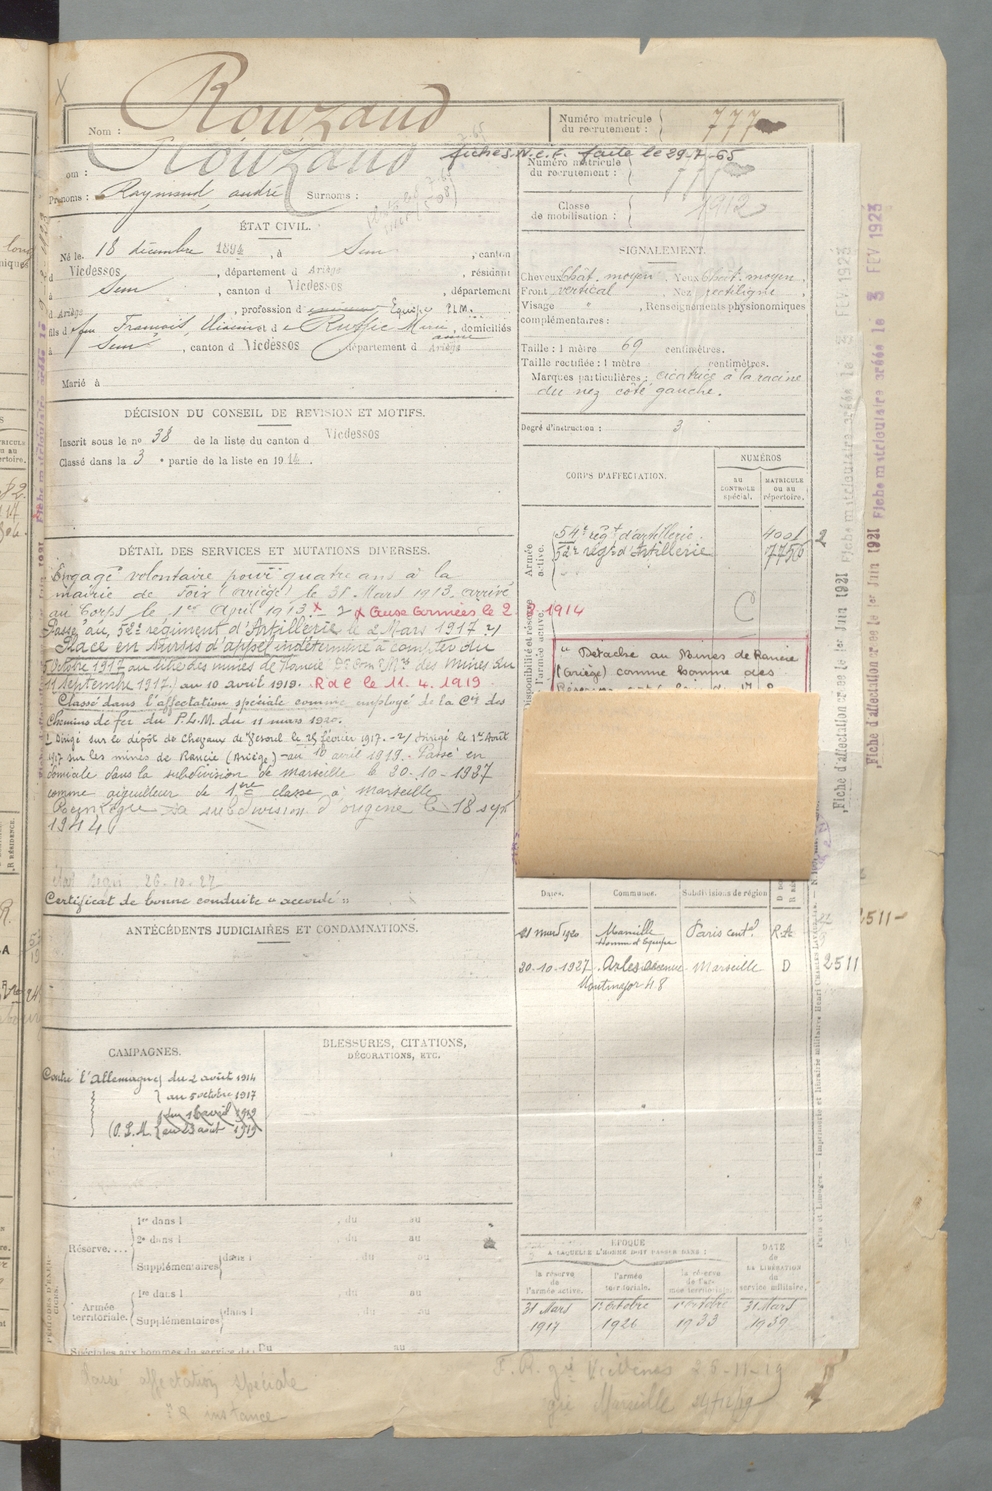 Rouzaud
Nom :
Numéro matricule
du recrutement :
777
fiches N.C.C. faite le 29-7-65
Numéro matricule
du recrutement :
Prénoms : Raymond, andré Surnoms :
Classe
de mobilisation : 1912
ÉTAT CIVIL.
Né le 18 décembre 1894, à Sem, canton
d Vicdessos, département d Ariège, résidant
à Sem, canton d Vicdessos, département
d Ariège, profession d Equipe P.L.M.
fils d feu Francois et d Ruffie Marie anne, domiciliés
à Sem, canton d Vicdessos département d Ariège
Marié à
SIGNALEMENT.
Cheveux Chât. moyen Yeux Chât. moyen,
Front vertical Nez rectiligne,
Visage " , Renseignements physionomiques
complémentaires :
Taille : 1 mètre 69 centimètres.
Taille rectifiée : 1 mètre centimètres.
Marques particulières : cicatrice à la racine
du nez côté gauche.
Degré d'instruction : 3
DÉCISION DU CONSEIL DE REVISION ET MOTIFS.
Inscrit sous le n° 38 de la liste du canton d Vicdessos
Classé dans la 3 e partie de la liste en 1914.
CORPS D'AFFECTATION.
NUMÉROS
AU
CONTROLE
spécial.
MATRICULE
OU AU
répertoire.
Armée
active.
54e régt d'artillerie. 4001
52e rég. d'Artillerie 7750
2
DÉTAIL DES SERVICES ET MUTATIONS DIVERSES.
Engagé volontaire pour quatre ans à la
mairie de Foix (ariège) le 31 Mars 1913 arrivé
au Corps le 1er April 1913 aux armées le 2.8.1914
Passé au 52e régiment d'Artillerie le 2 Mars 1917
Placé en sursis d'appel indéterminé à compter du
5 Octobre 1917 au titre des mines de Rancié Don Mre des Mines du
11 Septembre 1917 au 10 avril 1919. R d C le 11. 4. 1919
Classé dans l'affectation spéciale comme employé de la Cie des
Chemins de fer du P.L.M. du 11 mars 1920.
Dirigé sur le dépôt de Chevaux de Vesoul le 25 février 1917. Dirigé le 1er Août
1917 sur les mines de Rancié (Ariège) au 10 avril 1919. Passé en
domicile dans la subdivision de Marseille le 30-10-1937
comme aiguilleur de 1ère classe à Marseille
la subdivision d'origine le 18 sept
1944
26-10-27
Certificat de bonne conduite "accordé"
Disponibilité et réserve
de l'armée active.
" Détaché au Mines de Rancié
(Ariège) comme homme des
Dates. Commune. Subdivisions de région
21 mars 1920 Marseille Paris cent.l R.A.
Homme d'Equipe
30-10-1927 Arles Marseille D 2511
Montmajor 48
2511
ANTÉCÉDENTS JUDICIAIRES ET CONDAMNATIONS.
CAMPAGNES.
Contre l'Allemagne du 2 août 1914
au 5 octobre 1917
du 16 avril 1919
au 23 août 1919
BLESSURES, CITATIONS,
DÉCORATIONS, ETC.
Réserve....
1er dans l , du au
2e dans l , du au
Supplémentaires dans l du au
Armée
territoriale.
1er dans l , du au
Supplémentaires dans l du au
Spéciales aux hommes du service de : Du au
ÉPOQUE
A LAQUELLE L'HOMME DOIT PASSER DANS :
la réserve
de l'armée active.
l'armée
territoriale.
la réserve
de l'armée territoriale.
DATE
de
LA LIBÉRATION
du
service militaire.
31 Mars
1917
1er Octobre
1926
1er Octobre
1933
31 Mars
1939
Passé affectation spéciale
instance
25-11-19
Marseille
Fiche d'affectation créée le 1er Juin 1921
Fiche matriculaire créée le 3 FEV 1923